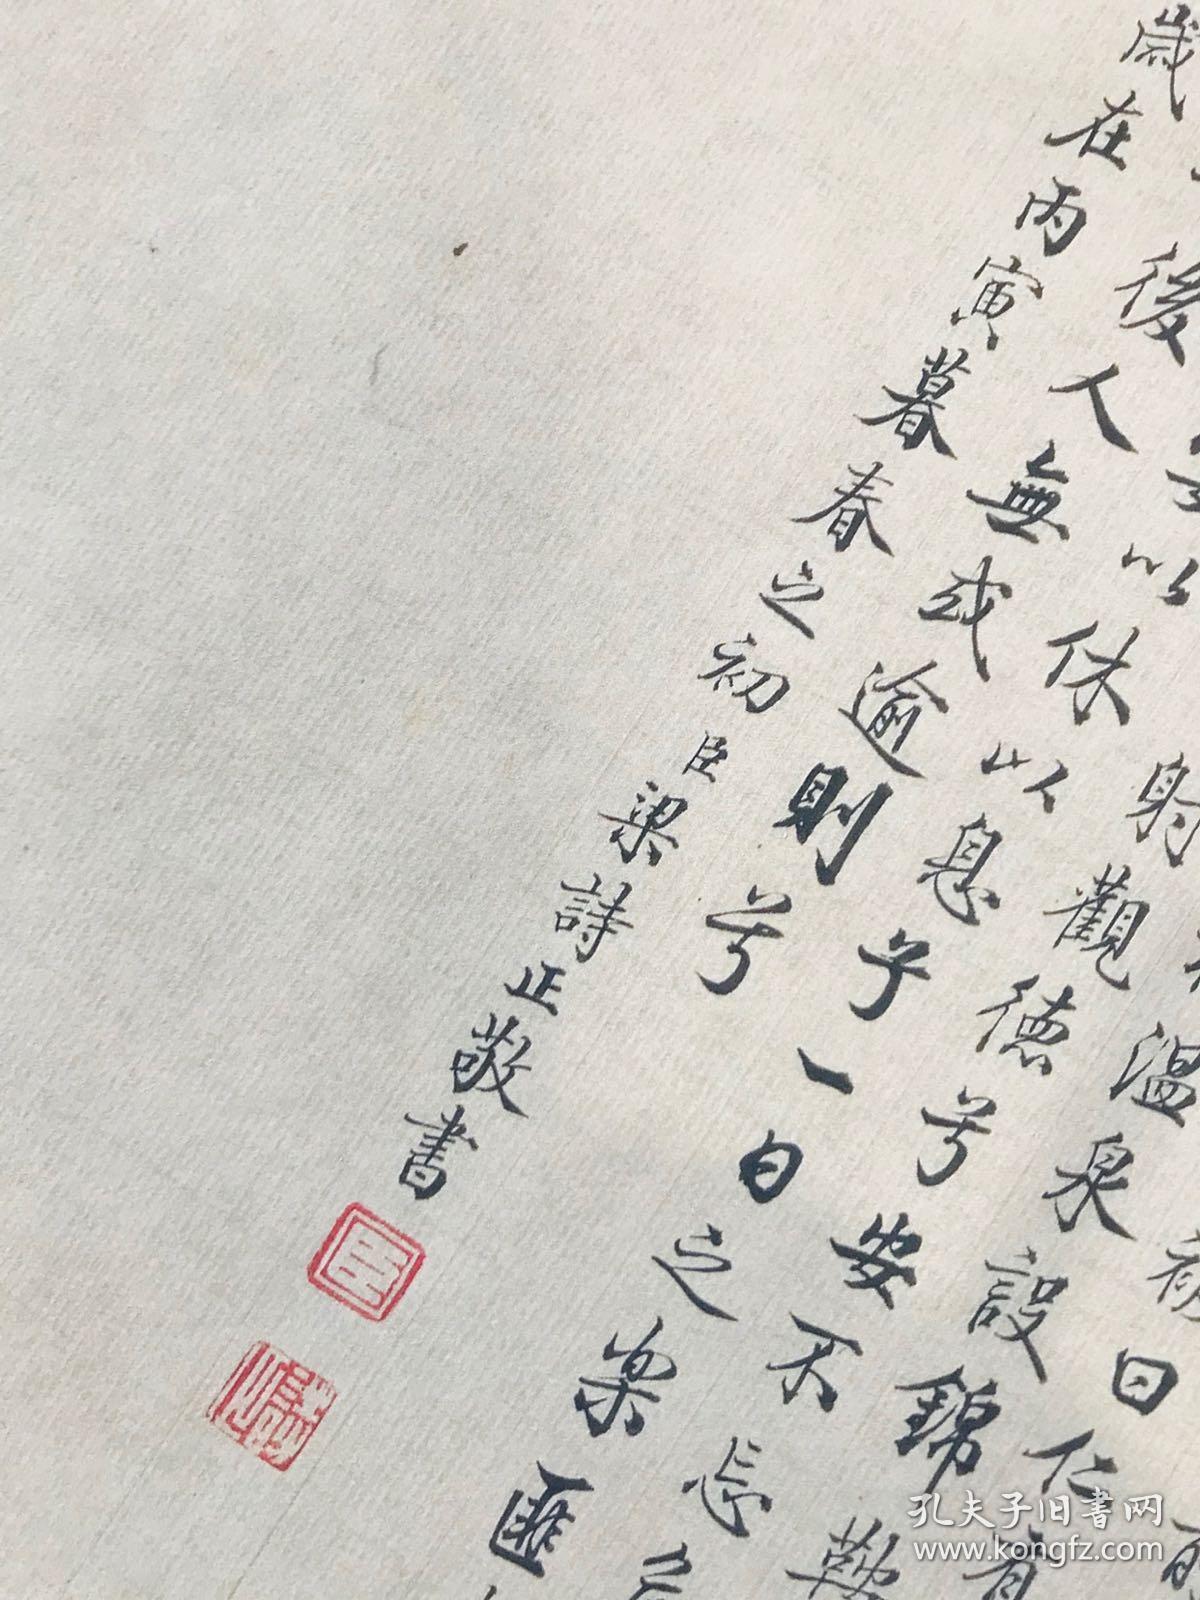 日仁有
溫泉設錦鞍
射觀德兮安不忘危
以休以息予一日之樂匪
後人無或逾則兮
歲在丙寅暮春之初臣梁詩正敬書
臣
孔夫子旧書网
www.kongfz.com